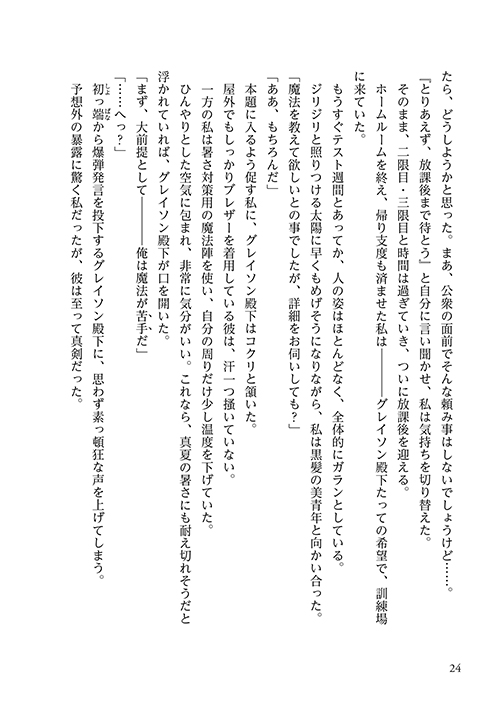 たら、どうしようかと思った。まあ、公衆の面前でそんな頼み事はしないでしょうけど……。
『とりあえず、放課後まで待とう』と自分に言い聞かせ、私は気持ちを切り替えた。
そのまま、二限目・三限目と時間は過ぎていき、ついに放課後を迎える。
ホームルームを終え、帰り支度も済ませた私は———グレイソン殿下たっての希望で、訓練場
に来ていた。
もうすぐテスト週間とあってか、人の姿はほとんどなく、全体的にガランとしている。
ジリジリと照りつける太陽に早くもめげそうになりながら、私は黒髪の美青年と向かい合った。
「魔法を教えて欲しいとの事でしたが、詳細をお伺いしても？」
「ああ、もちろんだ」
本題に入るよう促す私に、グレイソン殿下はコクリと頷いた。
屋外でもしっかりブレザーを着用している彼は、汗一つ掻いていない。
一方の私は暑さ対策用の魔法陣を使い、自分の周りだけ少し温度を下げていた。
ひんやりとした空気に包まれ、非常に気分がいい。これなら、真夏の暑さにも耐え切れそうだと
浮かれていれば、グレイソン殿下が口を開いた。
「まず、大前提として———俺は魔法が苦手だ」
「……へっ？」
初っ端から爆弾発言を投下するグレイソン殿下に、思わず素っ頓狂な声を上げてしまう。
しょ ぱな
予想外の暴露に驚く私だったが、彼は至って真剣だった。
24